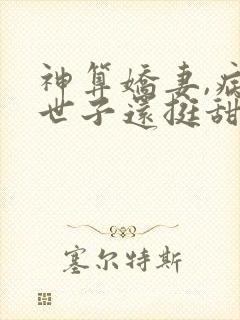 神算嬌妻,病
世子還挺甜
塞尔特斯